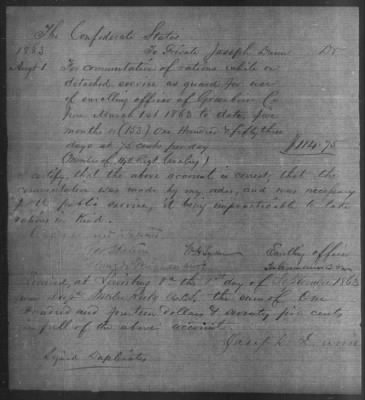 The Confederate States
1863 To Private Joseph Dunn Dr
Augt 1 For commutation of rations while on
detached service as guard for use
of enrolling officer of Grainger Co
from March 1st 1863 to date, five
months or (153) One Hundred & fifty three
days at 75 cents per day $114.75
(Member of Regt Cavalry)
I certify, that the above account is correct; that the
commutation was made by my order, and was necessary
for the public service, it being impracticable to take
rations in kind.
Enrolling officer
Received, at the 1st day of September 1863
from Capt the sum of One
Hundred and fourteen dollars & seventy five cents
in full of the above account.
Joseph Dunn
Signed Duplicates